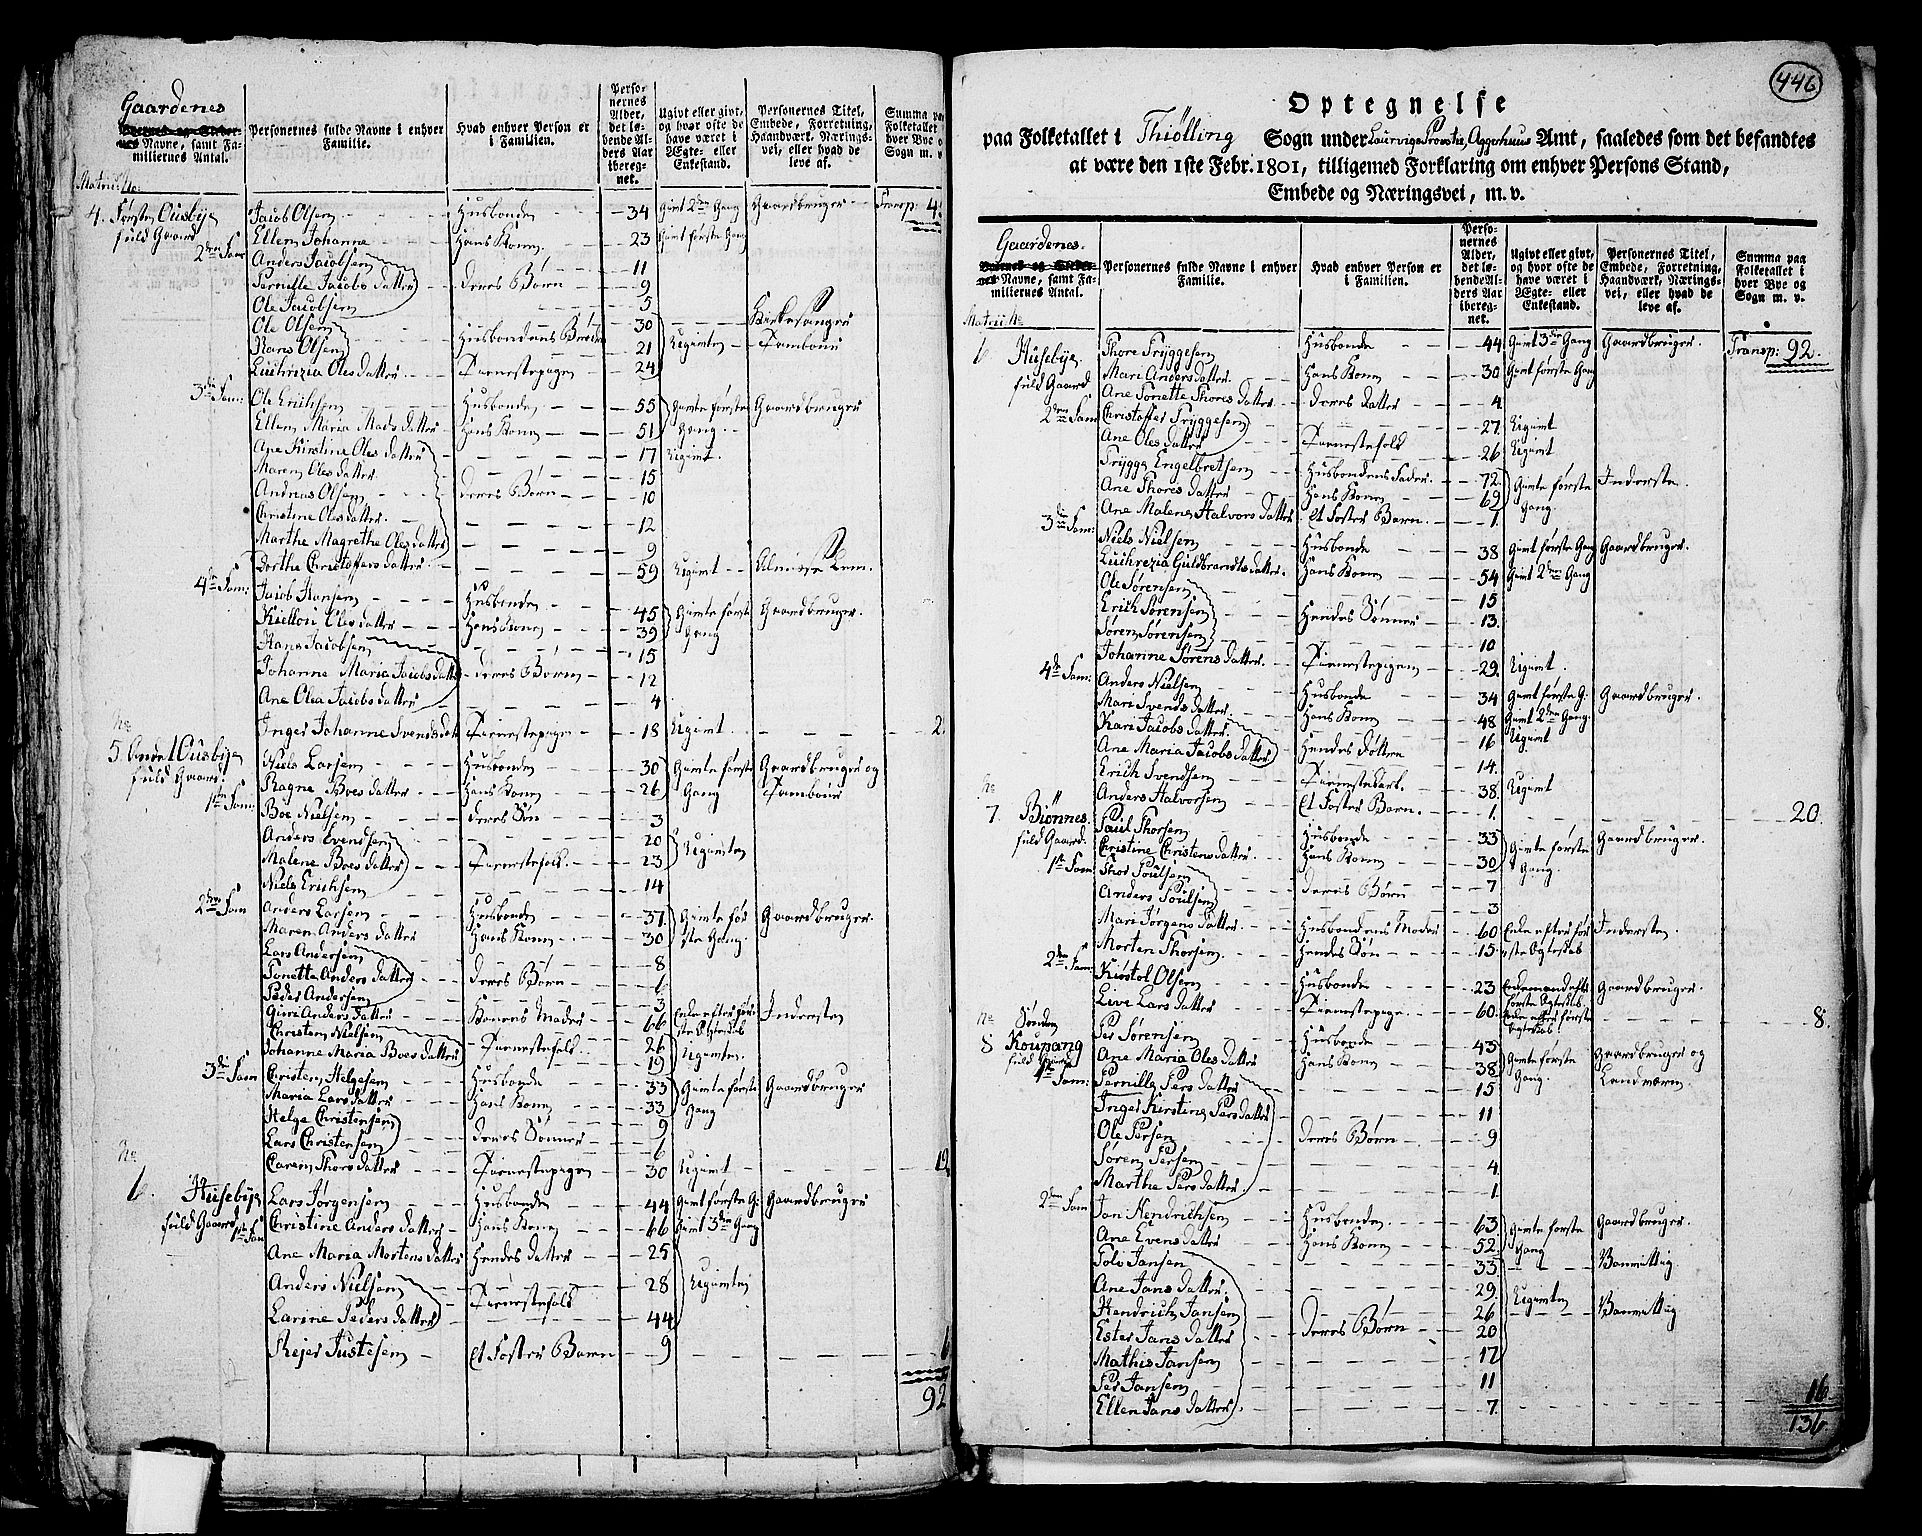 Gaardenes
Navne, samt Familiernes Antal.
Personernes fulde Navne i enhver Familie.
Hvad enhver Person er i Familien.
Personernes Alder, det løbende Alders Aar iberegnet.
Ugivt eller givt, og hvor ofte de have været i Ægte- eller Enkestand.
Personernes Titel, Embede, Forretning, Haandværk, Næringsvei, eller hvad de leve af.
Summa paa Folketallet i hver Bye og Sogn m. v.
Matric: No.
4. Første Ousbye Jacob Olsen Husbonde 34 Givt 2den Gang Gaardbruger Transp: 4
fuld Gaard Ellen Johanne Hans Kone 23 Givt første Gang
2den Fam Anders Jacobsen 11
Pernille Jacobs datter deres Børn 9
Ole Jacobsen 5
Ole Olsen Husbondens Brødre 30 Kirkesanger
Hans Olsen 21 Ugivte Tambour
Luchrezia Oles datter Tienestepige 24
3die Fam: Ole Erichsen Husbonde 55 Givte første Gaardbruger
Ellen Maria Mads datter Hans Kone 51 Gang
Ane Kirstine Oles datter 17 Ugivt
Maren Oles datter 15
Andreas Olsen deres Børn 10
Christine Oles datter 12
Marthe Magrethe Oles datter 9
Dorthe Christoffers datter 59 Ugivt Almisse Lem
4de Fam: Jacob Hansen Husbonde 45 Givte første Gaardbruger
Oles datter Hans Kone 39 Gang
Hans Jacobsen 15
Johanne Maria Jacobs datter deres Børn 12
Ane Olea Jacobs datter 4
No Inger Johanne Svends dat Tienestepige 18 Ugivt 2
5. Andet Ousbye Niels Larsen Husbonde 30 Givte første Gaardbruger og
fuld Gaard Ragne Boes datter Hans Kone 26 Gang Tambour
1ste Fam: Boe Nielsen deres Søn 3
Anders Evendsen 20
Malene Boes datter Tienestefolk 23 Ugivte
Niels Erichsen 14
2den Fam Anders Larsen Husbonde 37 Givte før Gaardbruger
Maren Anders datter Hans Kone 30 ste Gang
Lars Andersen 8
Tonette Anders datter deres Børn 6
Peder Andersen 3
Guri Anders datter Konens Moder 66 Enke efter før Inderste
Christen Nielsen 26 ste Ægteskab
Johanne Maria Boes datter Tienestefolk 19 Ugivte
3die Fam Christen Helgesen Husbonde 33 Givte første Gaardbruger
Maria Lars datter Hans Kone 33 Gang
Helge Christensen 9
Lars Christensen deres Sønner 6
No Caren Thors datter Tienestepige 30 Ugivt 19
6. Husebye Lars Jørgensen Husbonde 44 Givt første G: Gaardbruger
fuld Gaard 1ste Fam Christine Anders datter Hans Kone 66 Givt 3die Gang
Ane Maria Mortens datter Hendes datter 25
Anders Nielsen 28 Ugivte
Larine Peders datter Tienestefolk 44
Rejer Justesen et Foster Barn 9 6
92
446
Optegnelse
paa Folketallet i Thiølling Sogn under Laurvigs Provstie, Aggerhuus Amt, saaledes som det befandtes
at være den 1ste Febr. 1801, tilligemed Forklaring om enhver Persons Stand,
Embede og Næringsvei, m. v.
Gaardenes
Navne, samt Familiernes Antal.
Personernes fulde Navne i enhver Familie.
Hvad enhver Person er i Familien.
Personernes Alder, det løbende Alders Aar iberegnet.
Ugivt eller givt, og hvor ofte de have været i Ægte- eller Enkestand.
Personernes Titel, Embede, Forretning, Haandværk, Næringsvei, eller hvad de leve af.
Summa paa Folketallet i hver Bye og Sogn m. v.
Matric: No
6 Husebye Thore Tryggesen Husbonde 44 Givt 3die Gang Gaardbruger Transp: 92.
fuld Gaard Mari Anders datter Hans Kone 30 Givt første Gang
Ane Tonette Thores datter deres datter 4
2den Fam Christoffer Tryggesen 27 Ugivt
Ane Oles datter Tienestefolk 26 Ugivt
Trygge Engelbretsen Husbondens Fader 72 Givte første Inderste
Ane Thores datter Hans Kone 69 Gang
Ane Malene Halvors datter et Foster Barn 1
3die Fam: Niels Nielsen Husbonde 38 Givt første Gang Gaardbruger
Luchrezia Guldbrandts datter Hans Kone 54 Givt 2den Gang
Ole Sørensen 15
Erich Sørensen Hendes Sønner 13
Søren Sørensen 10
Johanne Sørens datter Tienestepige 29 Ugivt
4de Fam: Anders Nielsen Husbonde 34 Givt første G: Gaardbruger
Mari Svends datter Hans Kone 48 Givt 2den Gang
Kari Jacobs datter 16 Ugivt
Ane Maria Jacobs datter Hendes døttre 14
Erich Svendsen Tienestekarl 38 Ugivt
No Anders Halvorsen et Foster Barn 1 20
7. Biønnes Paul Thorsen Husbonde 33 Givte første Gaardbruger
fuld Gaard Christine Christens datter Hans Kone 30 Gang
1ste Fam Thor Poulsen deres Børn 7
Anders Poulsen 3
Mari Jørgens datter Husbondens Moder 60 Enke efter før Inderste
Morten Thorsen Hendes Søn 15 ste Ægteskab
2den Fam Kiøstel Olsen Husbonde 23 Enkemand efter Gaardbruger
Live Lars datter Tienestepige 60 første Ægteskab Enke efter første Ægteskab 8
No Søndre Per Sørensen Husbonde 43 Givte første Gaardbruger og
8 Koupang Ane Maria Oles datter Hans Kone 38 Gang Landværn
fuld Gaard 1ste Fam: Pernille Pers datter 15
Inger Kirstine Pers datter 11
Ole Persen deres Børn 9
Søren Persen 4
Marthe Pers datter 1
2den Fam Jan Hendrichsen Husbonde 63 Givte første Gaardbruger
Ane Evens datter Hans Kone 52 Gang
Polv Jansen 33 Vanvittig
Ane Jans datter 29 Ugivte
Hendrich Jansen deres Børn 26 Vanvittig
Ester Jans datter 20
Mathis Jansen 17
Per Jansen 11
Ellen Jans datter 7 16
136